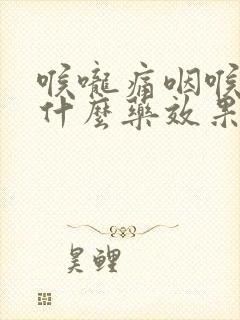 喉嚨痛咽喉
什麼藥效果
昊鲤